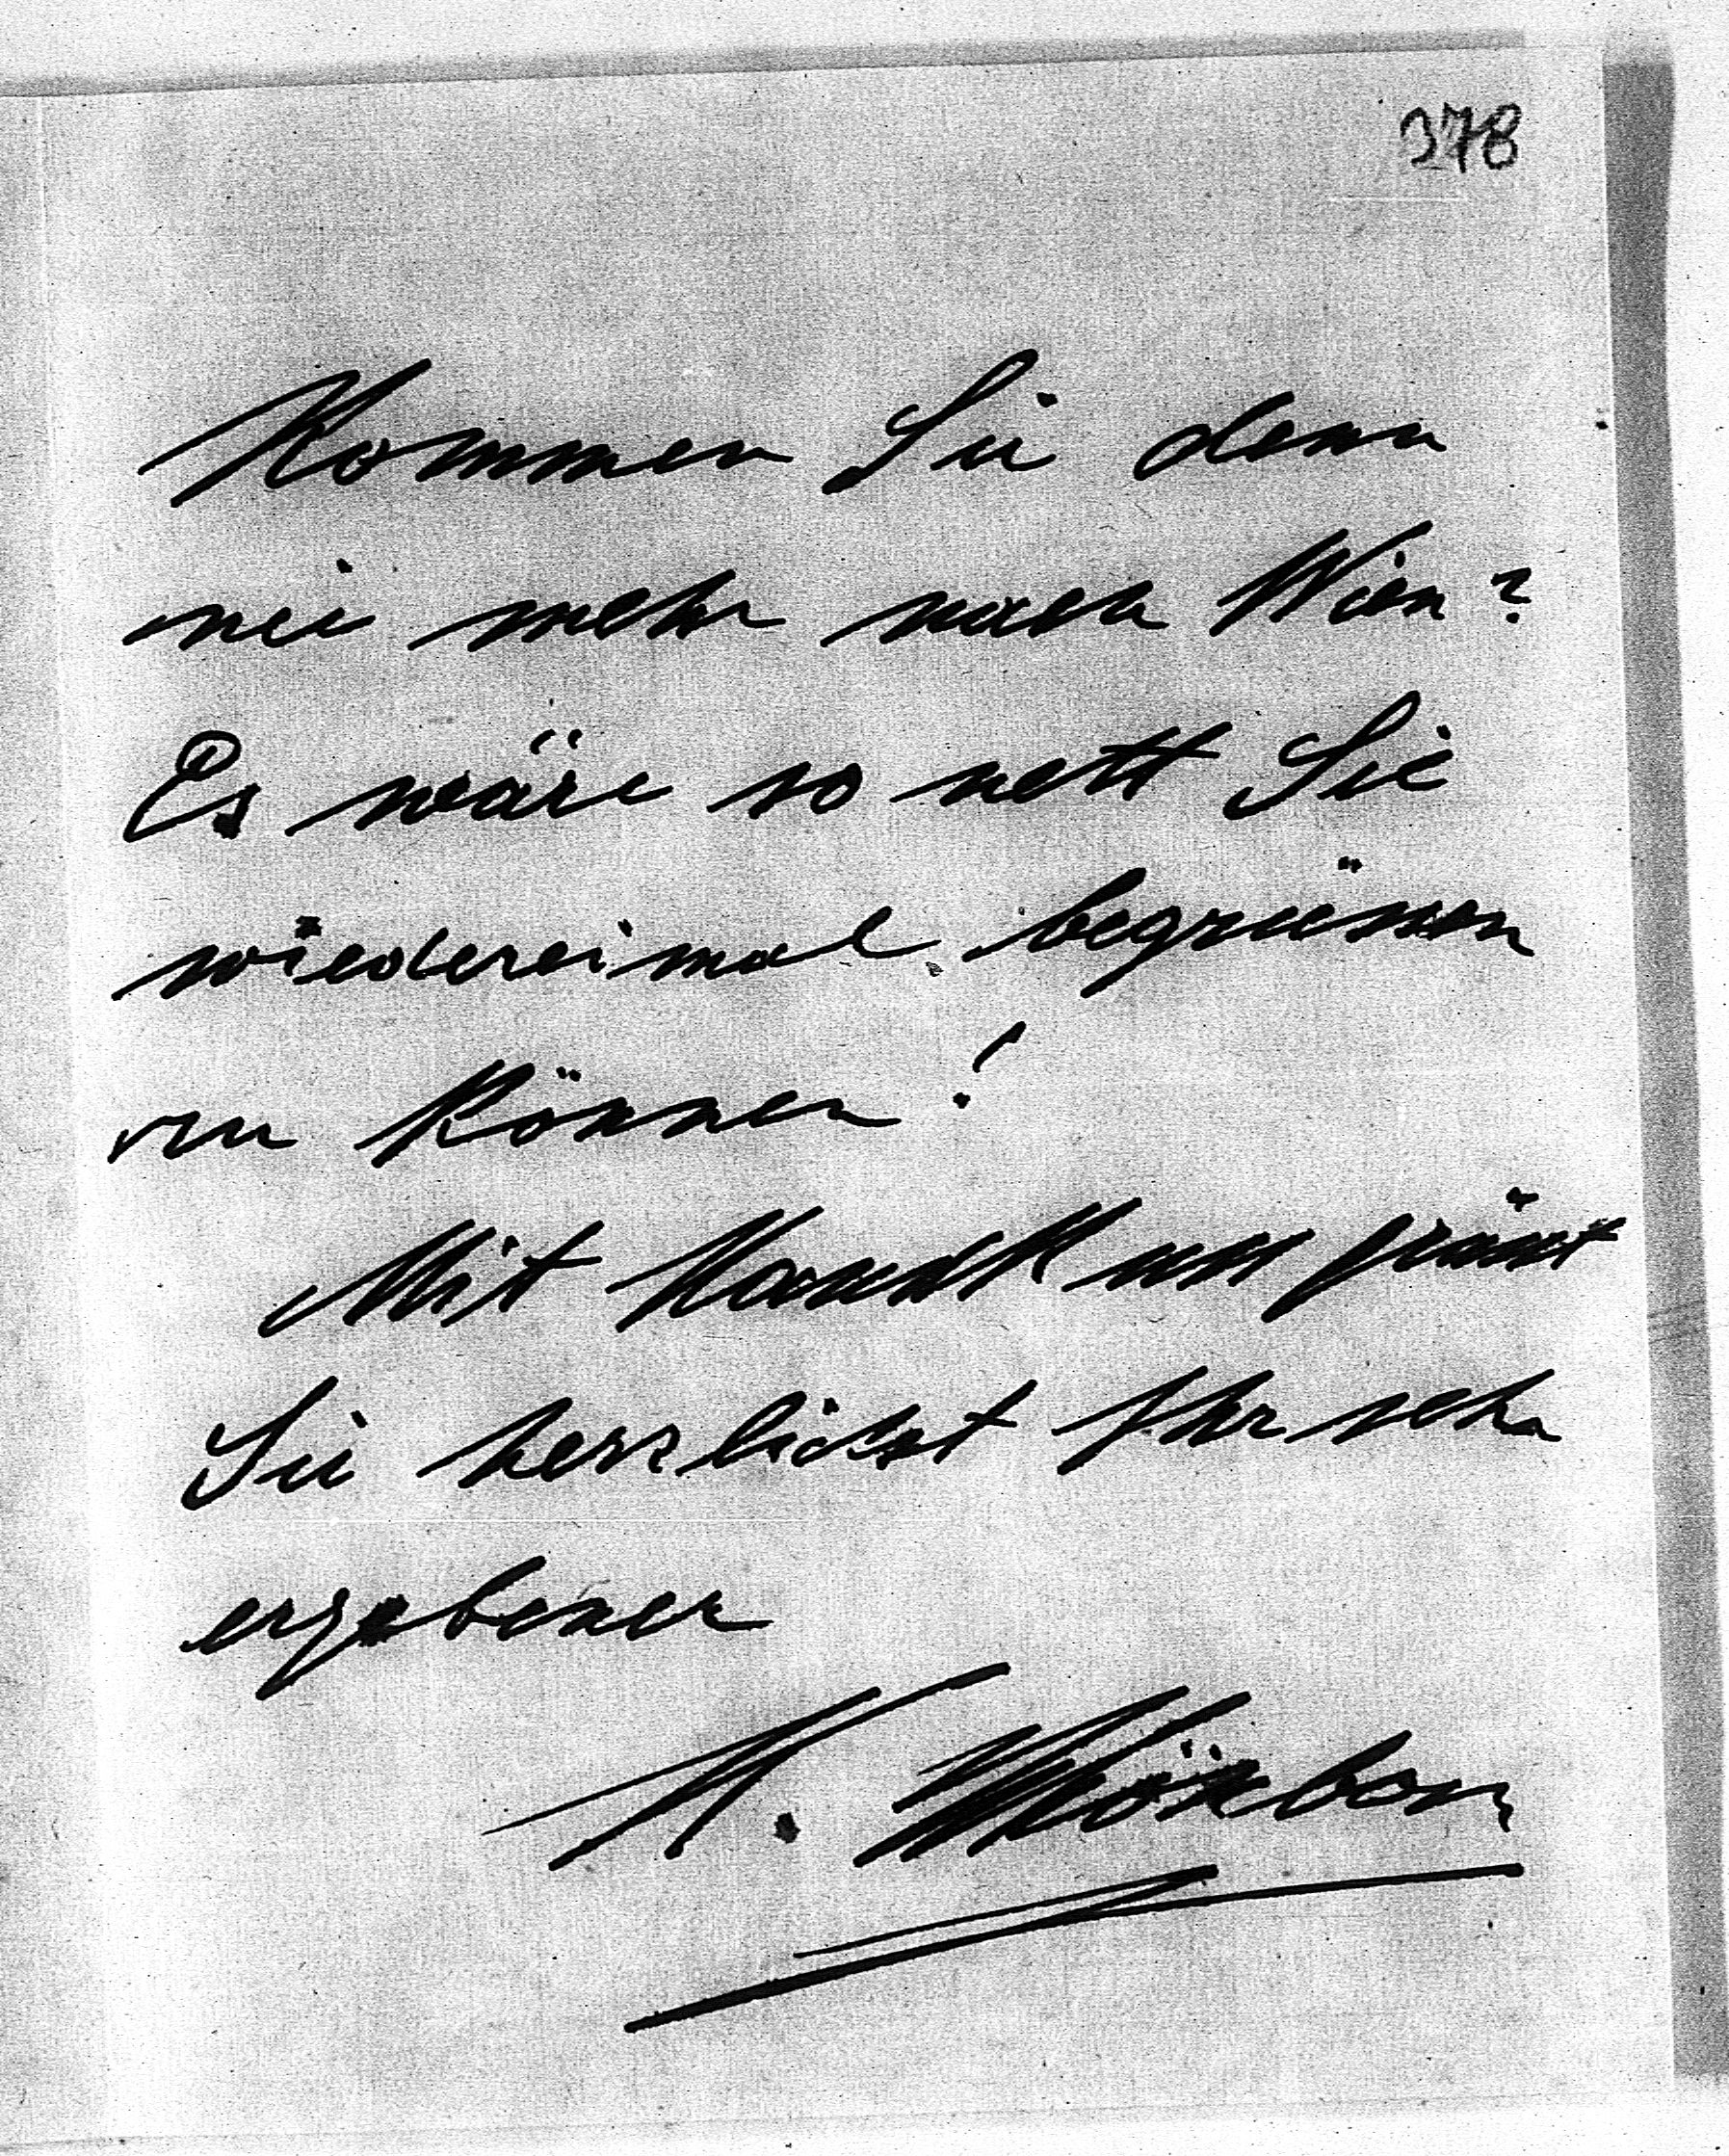 378
Kommen Sie denn
nie mehr nach Wien?
Es wäre so nett Sie
wiedereinmal begrüssen
zu können!
Mit Handkuss grüsst
Sie herzlichst Ihr sehr
ergebener
A. Schönborn